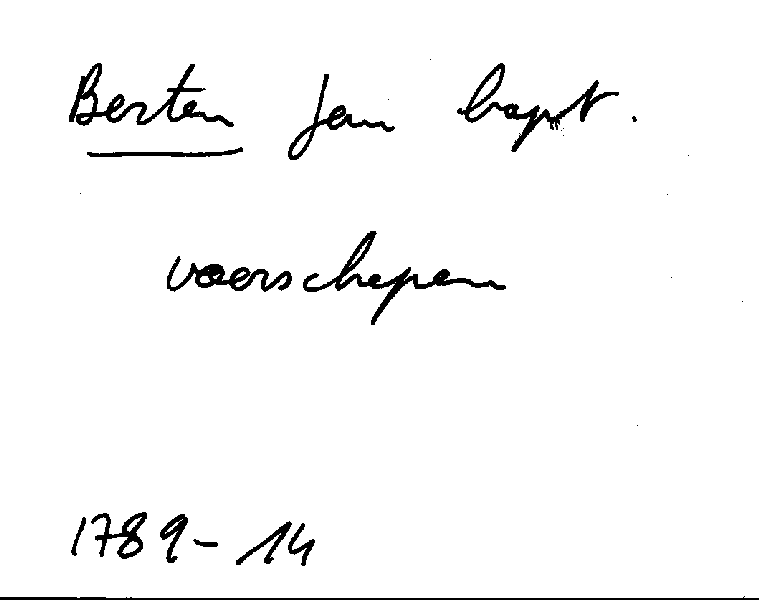 Berten Jan bapt.
voerschepen
1789-14